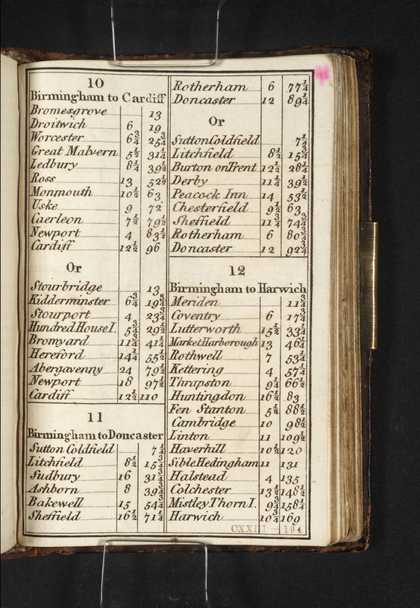 10
Birmingham to Cardiff
Bromesgrove 13
Droitwich 6 19
Worcester 6¾ 25¾
Great Malvern 5½ 31¼
Ledbury 8¼ 39½
Ross 13 52½
Monmouth 10½ 63
Uske 9 72
Caerleon 7½ 79½
Newport 4 83½
Cardiff 12½ 96
Or
Stourbridge 13
Kidderminster 6¾ 19¾
Stourport 4 23¾
Hundred House I. 5¾ 29½
Bromyard 11¾ 41¼
Hereford 14¼ 55½
Abergavenny 24 79½
Newport 18 97½
Cardiff 12½ 110
11
Birmingham to Doncaster
Sutton Coldfield
Litchfield 8½
Sudbury 16
Ashborn 8
Bakewell 15
Sheffield 16½ 71¼
Rotherham 6 77¼
Doncaster 12 89¼
Or
Sutton Coldfield
Litchfield 8½
Burton on Trent 12¾ 28¼
Derby 11¼ 39½
Peacock Inn 14 53½
Chesterfield 9½ 63
Sheffield 11¾ 74¾
Rotherham 6 80¾
Doncaster 12 92¾
12
Birmingham to Harwich
Meriden 11¾
Coventry 6 17¾
Lutterworth 15½ 33¼
Market Harborough 13 46¼
Rothwell 7 53¼
Kettering 4 57¼
Thrapston 9¼ 66½
Huntingdon 16½ 83
Fen Stanton 5½ 88½
Cambridge 10 98½
Linton 11 109½
Haverhill 10½ 120
Sible Hedingham 11 131
Halstead 4 135
Colchester 13½ 148½
Mistley Thorn I. 9¾ 158¼
Harwich 10¾ 169